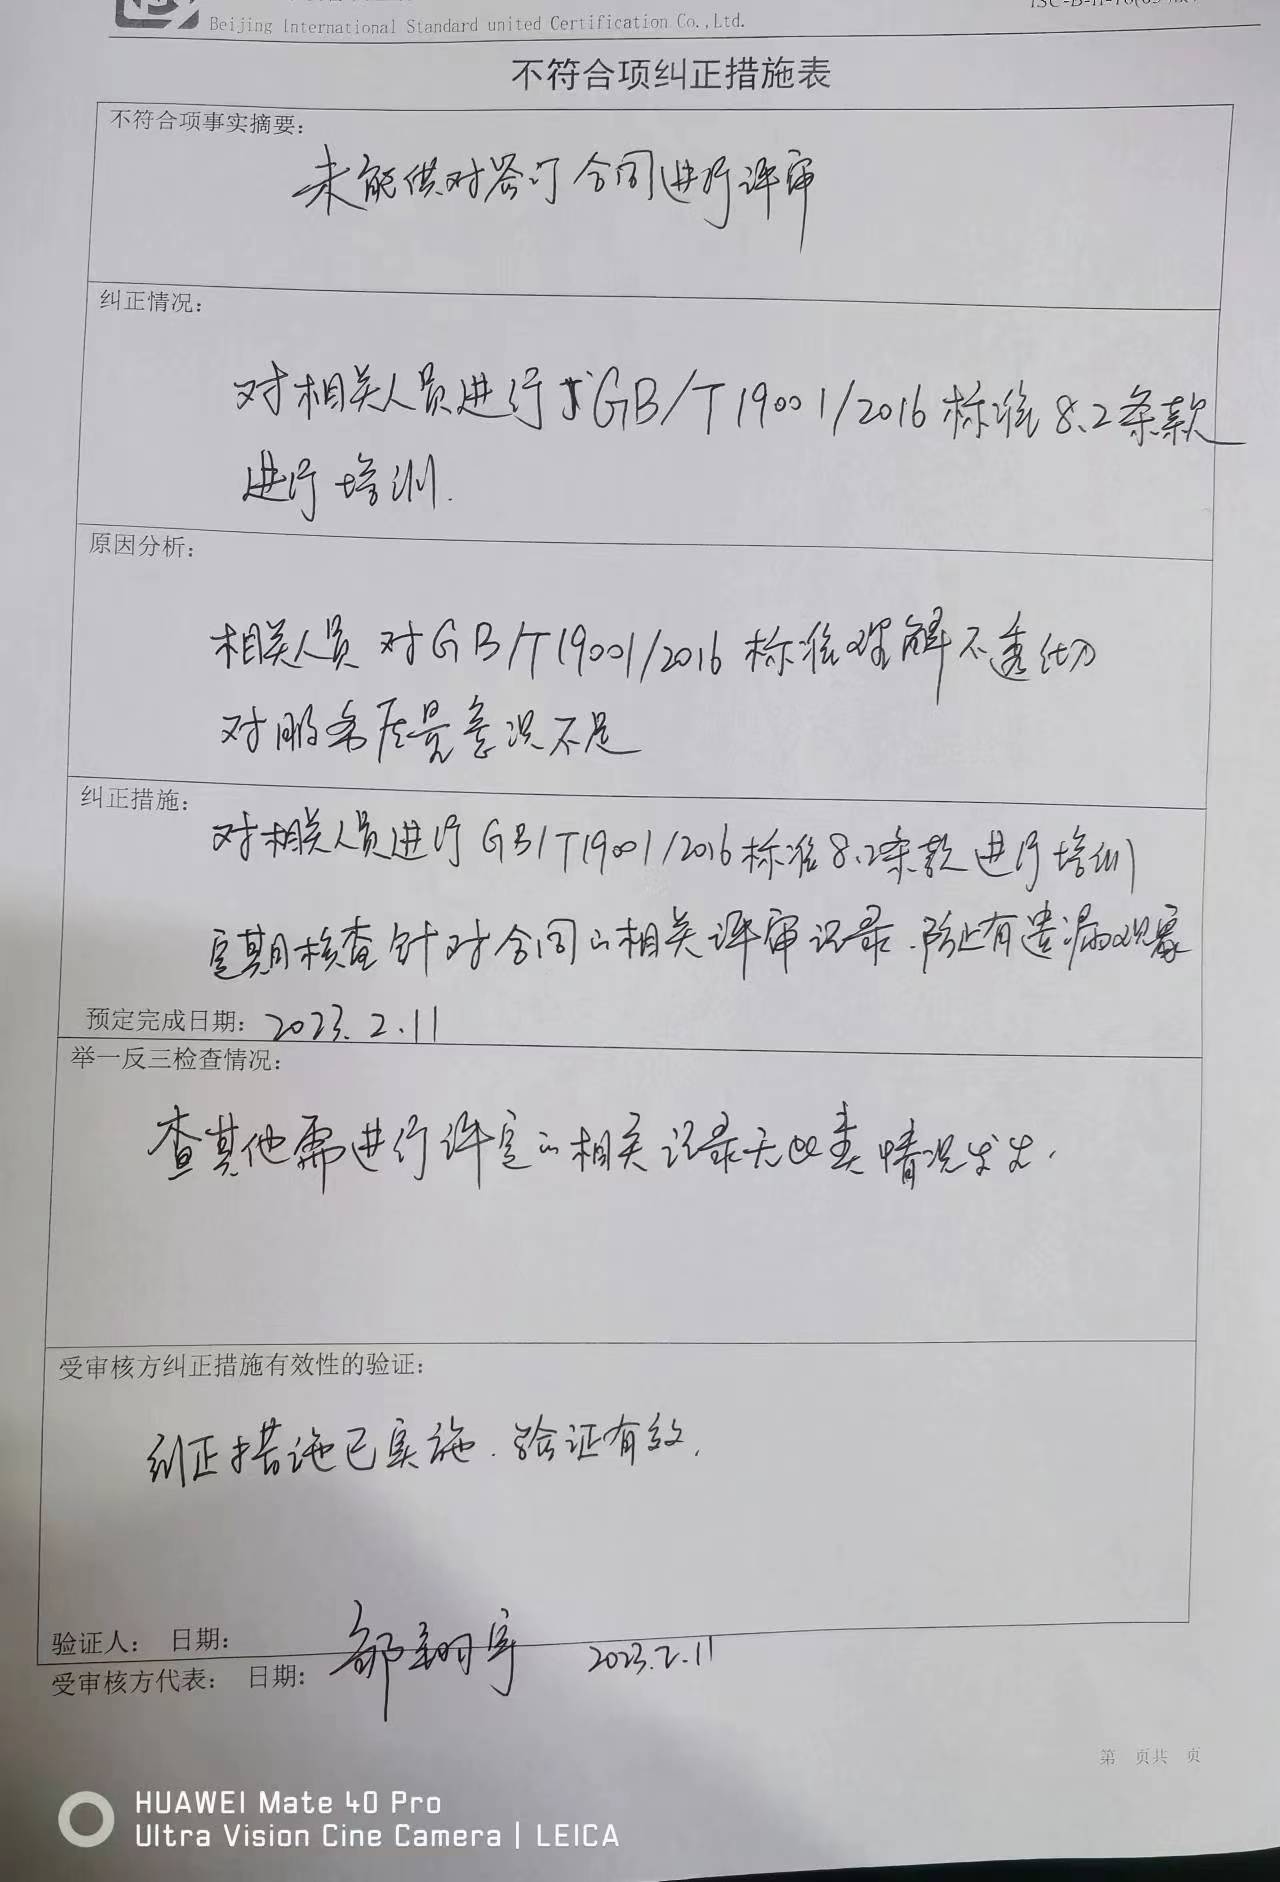 Beijing International Standard united Certification Co.,Ltd.
不符合项纠正措施表
不符合项事实摘要:
未能供对签订合同进行评审
纠正情况:
对相关人员进行GB/T19001/2016标准8.2条款
进行培训.
原因分析:
相关人员对GB/T19001/2016标准理解不透切
对服务质量意识不足
纠正措施:
对相关人员进行GB/T19001/2016标准8.2条款进行培训
定期核查针对合同的相关评审记录.防止有遗漏现象
预定完成日期: 2023.2.11
举一反三检查情况:
查其他需进行评定的相关记录无此类情况发生.
受审核方纠正措施有效性的验证:
纠正措施已实施.验证有效.
验证人: 日期:
受审核方代表: 日期: 邹翔宇 2023.2.11
第 页共 页
HUAWEI Mate 40 Pro
Ultra Vision Cine Camera | LEICA